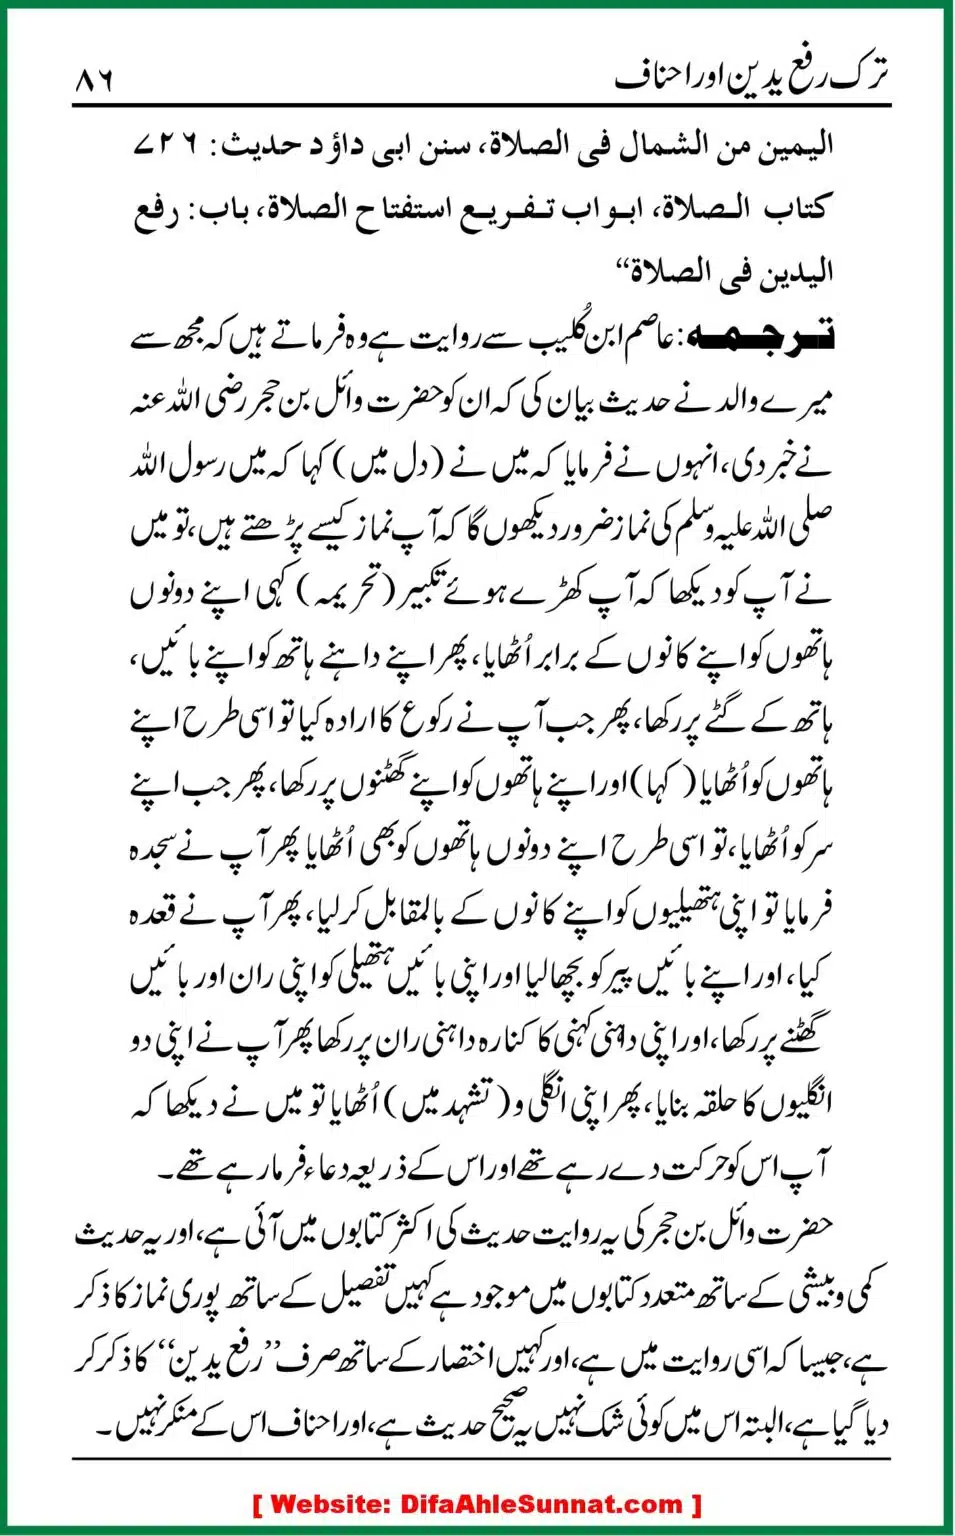 ترک رفع یدین اور احناف
۸۶
الیمین من الشمال فی الصلاۃ، سنن ابی داؤد حدیث: ۷۲۶
کتاب الصلاۃ، ابواب تفریع استفتاح الصلاۃ، باب: رفع
الیدین فی الصلاۃ“
ترجمہ: عاصم ابن کُلیب سے روایت ہے وہ فرماتے ہیں کہ مجھ سے
میرے والد نے حدیث بیان کی کہ ان کو حضرت وائل بن حجر رضی اللہ عنہ
نے خبر دی، انہوں نے فرمایا کہ میں نے (دل میں) کہا کہ میں رسول اللہ
صلی اللہ علیہ وسلم کی نماز ضرور دیکھوں گا کہ آپ نماز کیسے پڑھتے ہیں، تو میں
نے آپ کو دیکھا کہ آپ کھڑے ہوئے تکبیر (تحریمہ) کہی اپنے دونوں
ہاتھوں کو اپنے کانوں کے برابر اُٹھایا، پھر اپنے داہنے ہاتھ کو اپنے بائیں،
ہاتھ کے گٹے پر رکھا، پھر جب آپ نے رکوع کا ارادہ کیا تو اسی طرح اپنے
ہاتھوں کو اُٹھایا (کہا) اور اپنے ہاتھوں کو اپنے گھٹنوں پر رکھا، پھر جب اپنے
سر کو اُٹھایا، تو اسی طرح اپنے دونوں ہاتھوں کو بھی اُٹھایا پھر آپ نے سجدہ
فرمایا تو اپنی ہتھیلیوں کو اپنے کانوں کے بالمقابل کر لیا، پھر آپ نے قعدہ
کیا، اور اپنے بائیں پیر کو بچھا لیا اور اپنی بائیں ہتھیلی کو اپنی ران اور بائیں
گھٹنے پر رکھا، اور اپنی داہنی کہنی کا کنارہ داہنی ران پر رکھا پھر آپ نے اپنی دو
انگلیوں کا حلقہ بنایا، پھر اپنی انگلی و (تشہد میں) اُٹھایا تو میں نے دیکھا کہ
آپ اس کو حرکت دے رہے تھے اور اس کے ذریعہ دعاء فرما رہے تھے۔
حضرت وائل بن حجر کی یہ روایت حدیث کی اکثر کتابوں میں آئی ہے، اور یہ حدیث
کمی و بیشی کے ساتھ متعدد کتابوں میں موجود ہے کہیں تفصیل کے ساتھ پوری نماز کا ذکر
ہے، جیسا کہ اسی روایت میں ہے، اور کہیں اختصار کے ساتھ صرف ”رفع یدین“ کا ذکر کر
دیا گیا ہے، البتہ اس میں کوئی شک نہیں یہ صحیح حدیث ہے، اور احناف اس کے منکر نہیں۔
[ Website: DifaAhleSunnat.com ]